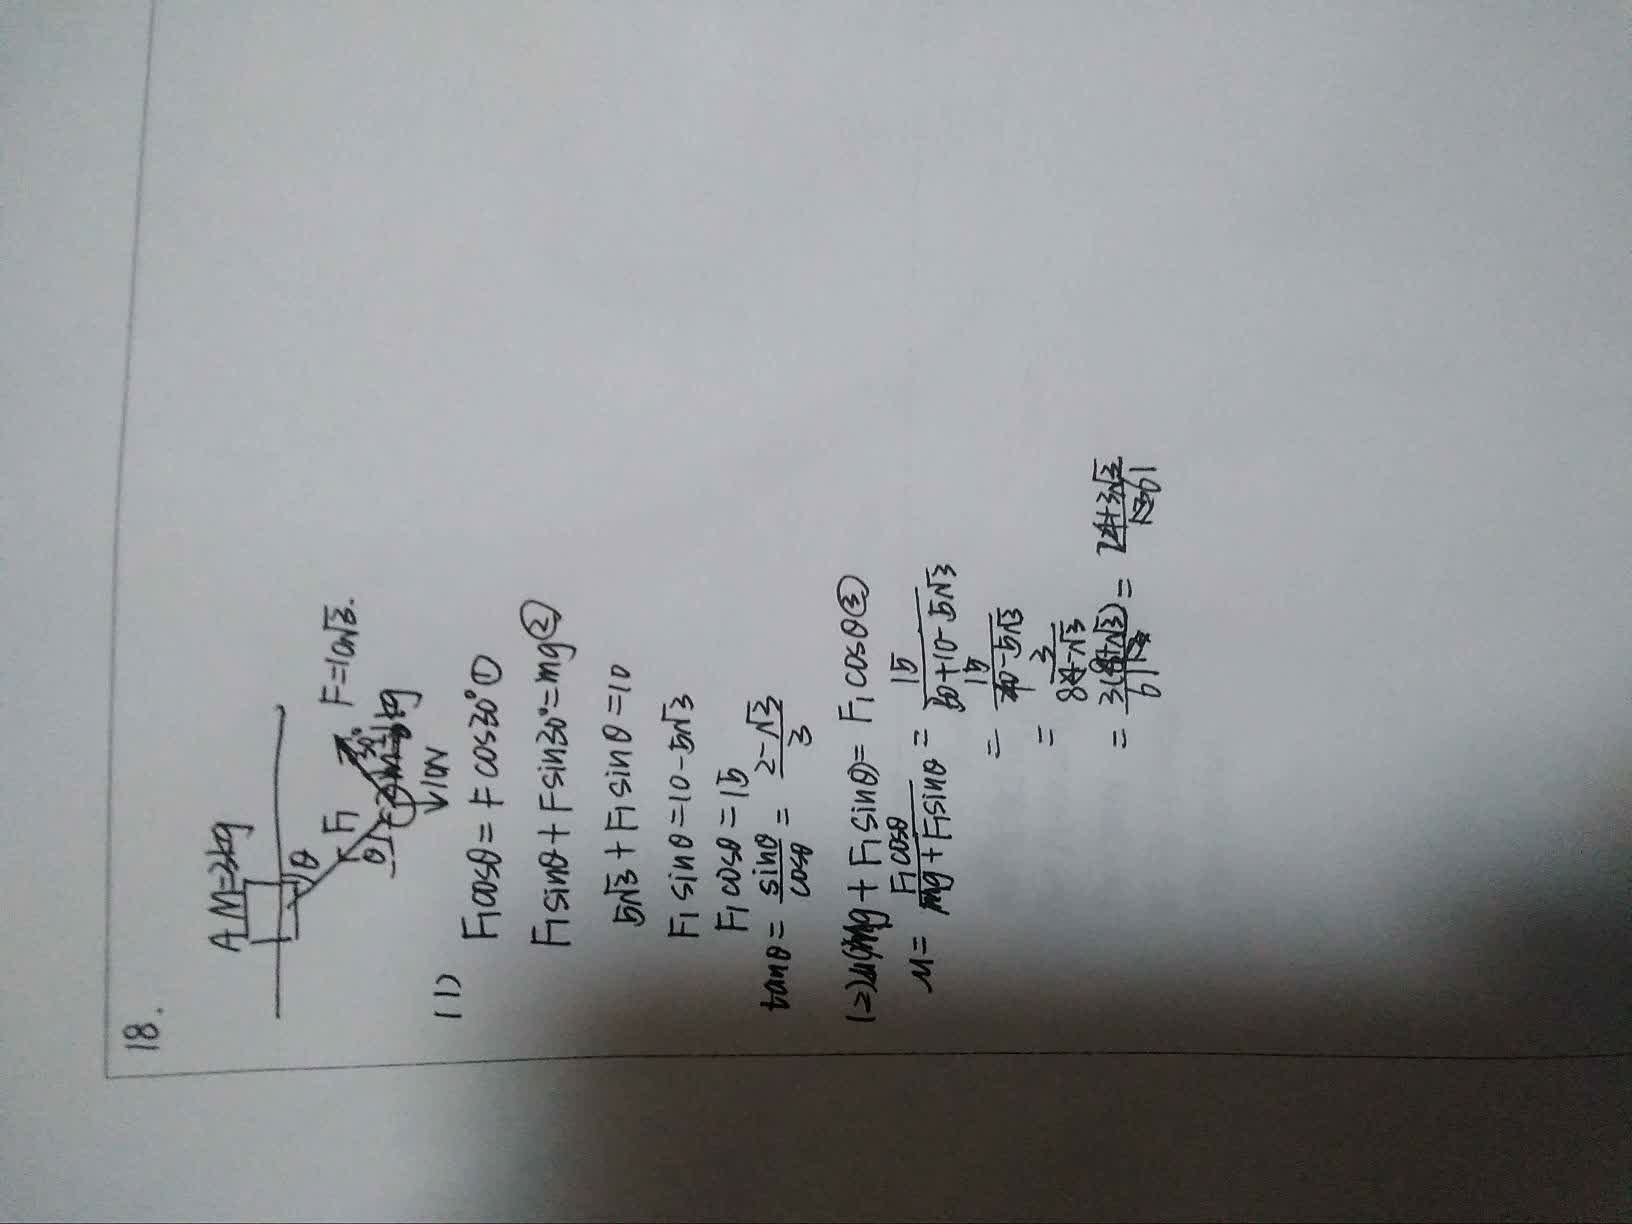 18.
A M=3kg
F=10√3.
F₁
θ
θ
30°
10N
(1) F₁cosθ=Fcos30°①
F₁sinθ+Fsin30°=mg②
5√3+F₁sinθ=10
F₁sinθ=10-5√3
F₁cosθ=15
tanθ=sinθ/cosθ=2-√3/3
(2)μ(mg+F₁sinθ)=F₁cosθ③
μ=F₁cosθ/mg+F₁sinθ=15/30+10-5√3
=15/40-5√3
=3/8-√3
=3(8+√3)/61=24+3√3/61